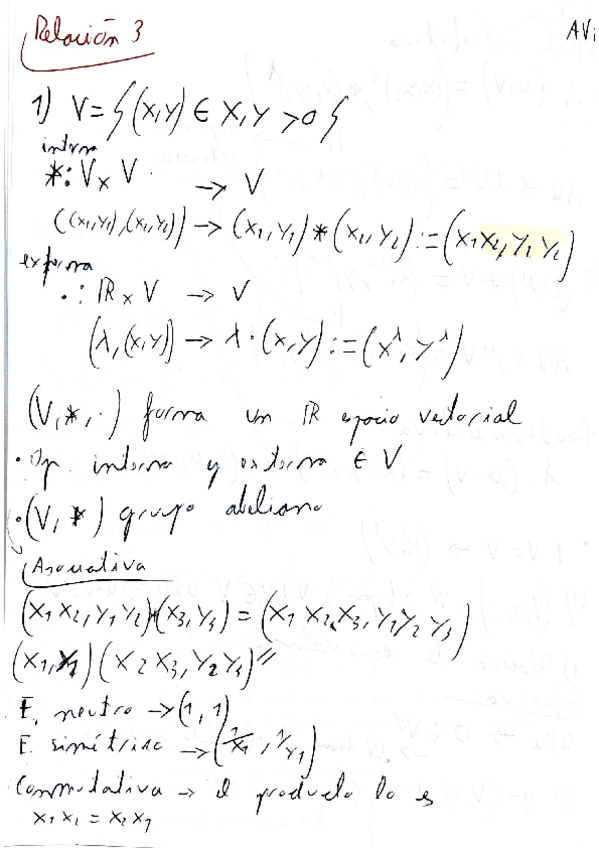 Relación 3
AVi
1) V = { (x,y) ∈ X,Y > 0 }
interna
*: V x V → V
((x1,y1),(x2,y2)) → (x1,y1)*(x2,y2) := (x1x2,y1y2)
externa
· : ℝ x V → V
(λ,(x,y)) → λ·(x,y) := (x^λ, y^λ)
(V,*,·) forma un ℝ espacio vectorial
• Op. interna y externa ∈ V
• (V,*) grupo abeliano
Asociativa
(x1x2,y1y2)*(x3,y3) = (x1x2x3,y1y2y3)
(x1,y1)(x2x3,y2y3)//
E. neutro → (1,1)
E. simétrico → (1/x1, 1/y1)
Conmutativa → el producto lo es
x1x2 = x2x1